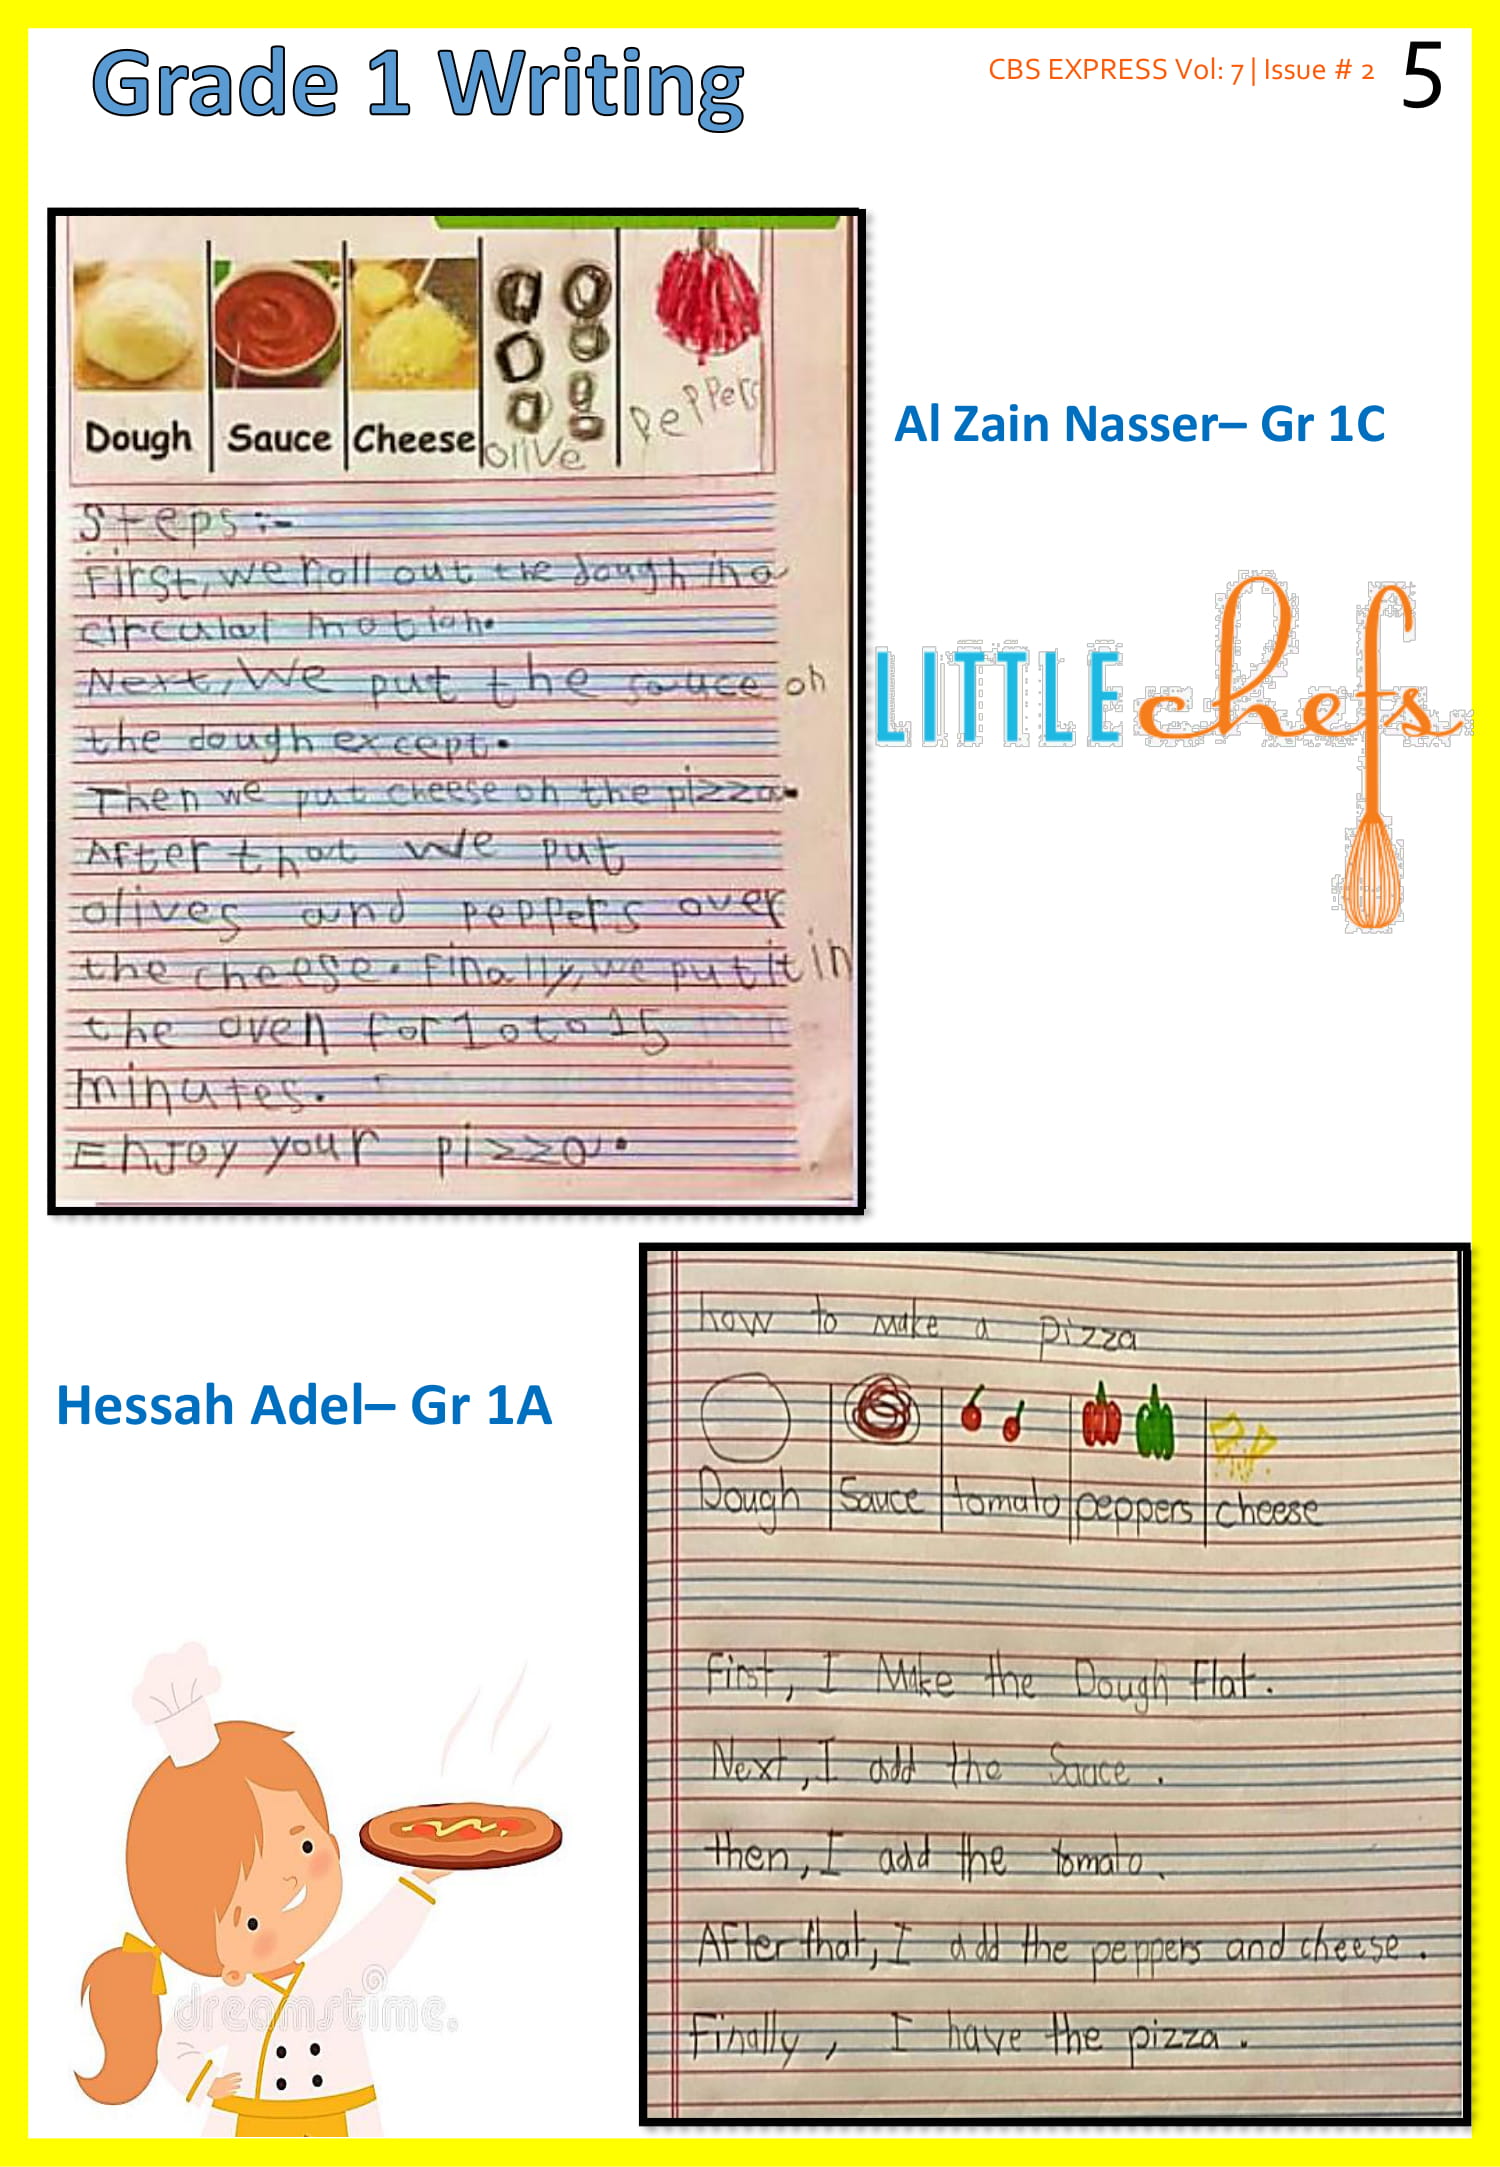 Grade 1 Writing
CBS EXPRESS Vol: 7 | Issue # 2
5
Dough Sauce Cheese olive peppers
Steps:-
First, we roll out the dough in a
circular motion.
Next, We put the sauce on
the dough except.
Then we put cheese on the pizza.
After that we put
olives and peppers over
the cheese. Finally, we put it in
the oven for 10 to 15
minutes.
Enjoy your pizza.
Al Zain Nasser– Gr 1C
LITTLE chefs
how to make a pizza
Dough Sauce tomato peppers cheese
First, I Make the Dough Flat.
Next, I add the Sauce.
then, I add the tomato.
After that, I add the peppers and cheese.
Finally, I have the pizza.
Hessah Adel– Gr 1A
dreamstime.